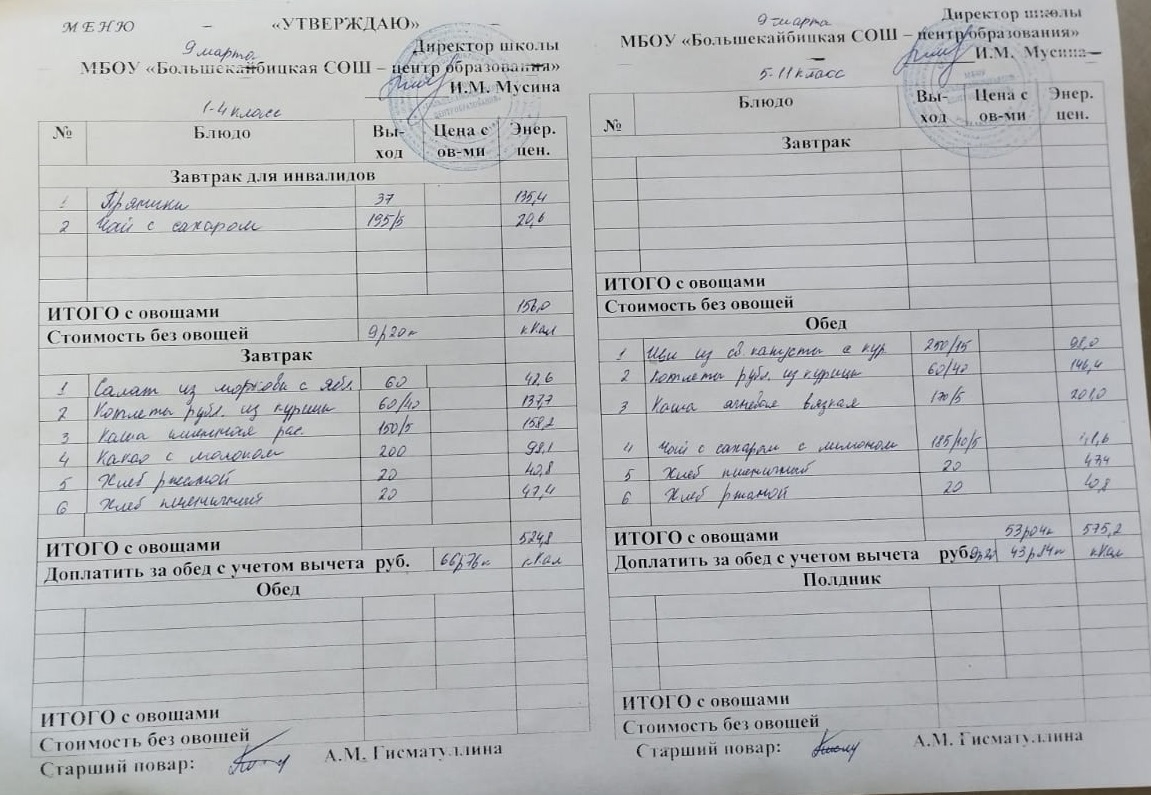 МЕНЮ – «УТВЕРЖДАЮ» –
9 марта Директор школы
МБОУ «Большекайбицкая СОШ – центр образования»
И.М. Мусина
1-4 класс
№ Блюдо Вы-ход Цена с ов-ми Энер. цен.
Завтрак для инвалидов
1 Пряники 37 135,4
2 Чай с сахаром 195/5 20,6
ИТОГО с овощами 156,0
Стоимость без овощей 9р20к кКал
Завтрак
1 Салат из моркови с ябл. 60 42,6
2 Котлеты рубл. из курицы 60/40 137,7
3 Каша пшенная рас. 150/5 158,2
4 Какао с молоком 200 98,1
5 Хлеб ржаной 20 40,8
6 Хлеб пшеничный 20 47,4
ИТОГО с овощами 524,8
Доплатить за обед с учетом вычета руб. 66р76к кКал
Обед
ИТОГО с овощами
Стоимость без овощей
Старший повар: А.М. Гисматуллина
9 марта Директор школы
МБОУ «Большекайбицкая СОШ – центр образования»
И.М. Мусина
5-11 класс
№ Блюдо Вы-ход Цена с ов-ми Энер. цен.
Завтрак
ИТОГО с овощами
Стоимость без овощей
Обед
1 Щи из св капусты с кур 250/15 98,0
2 Котлеты рубл. из курицы 60/40 146,4
3 Каша ячневая вязкая 170/5 201,0
4 Чай с сахаром с лимоном 185/10/5 41,6
5 Хлеб пшеничный 20 47,4
6 Хлеб ржаной 20 40,8
ИТОГО с овощами 53р04к 575,2
Доплатить за обед с учетом вычета руб. 43р84к кКал
Полдник
ИТОГО с овощами
Стоимость без овощей
Старший повар: А.М. Гисматуллина